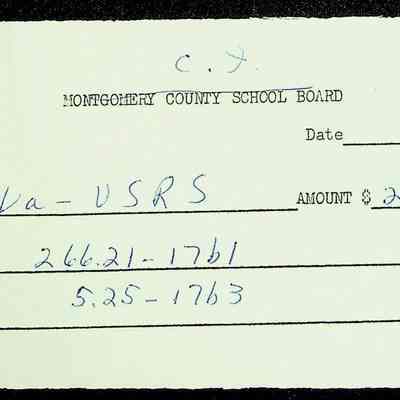 C. F.
MONTGOMERY COUNTY SCHOOL BOARD
Date
Va - VSRS AMOUNT $ 2
266.21 - 17b1
5.25 - 17b3